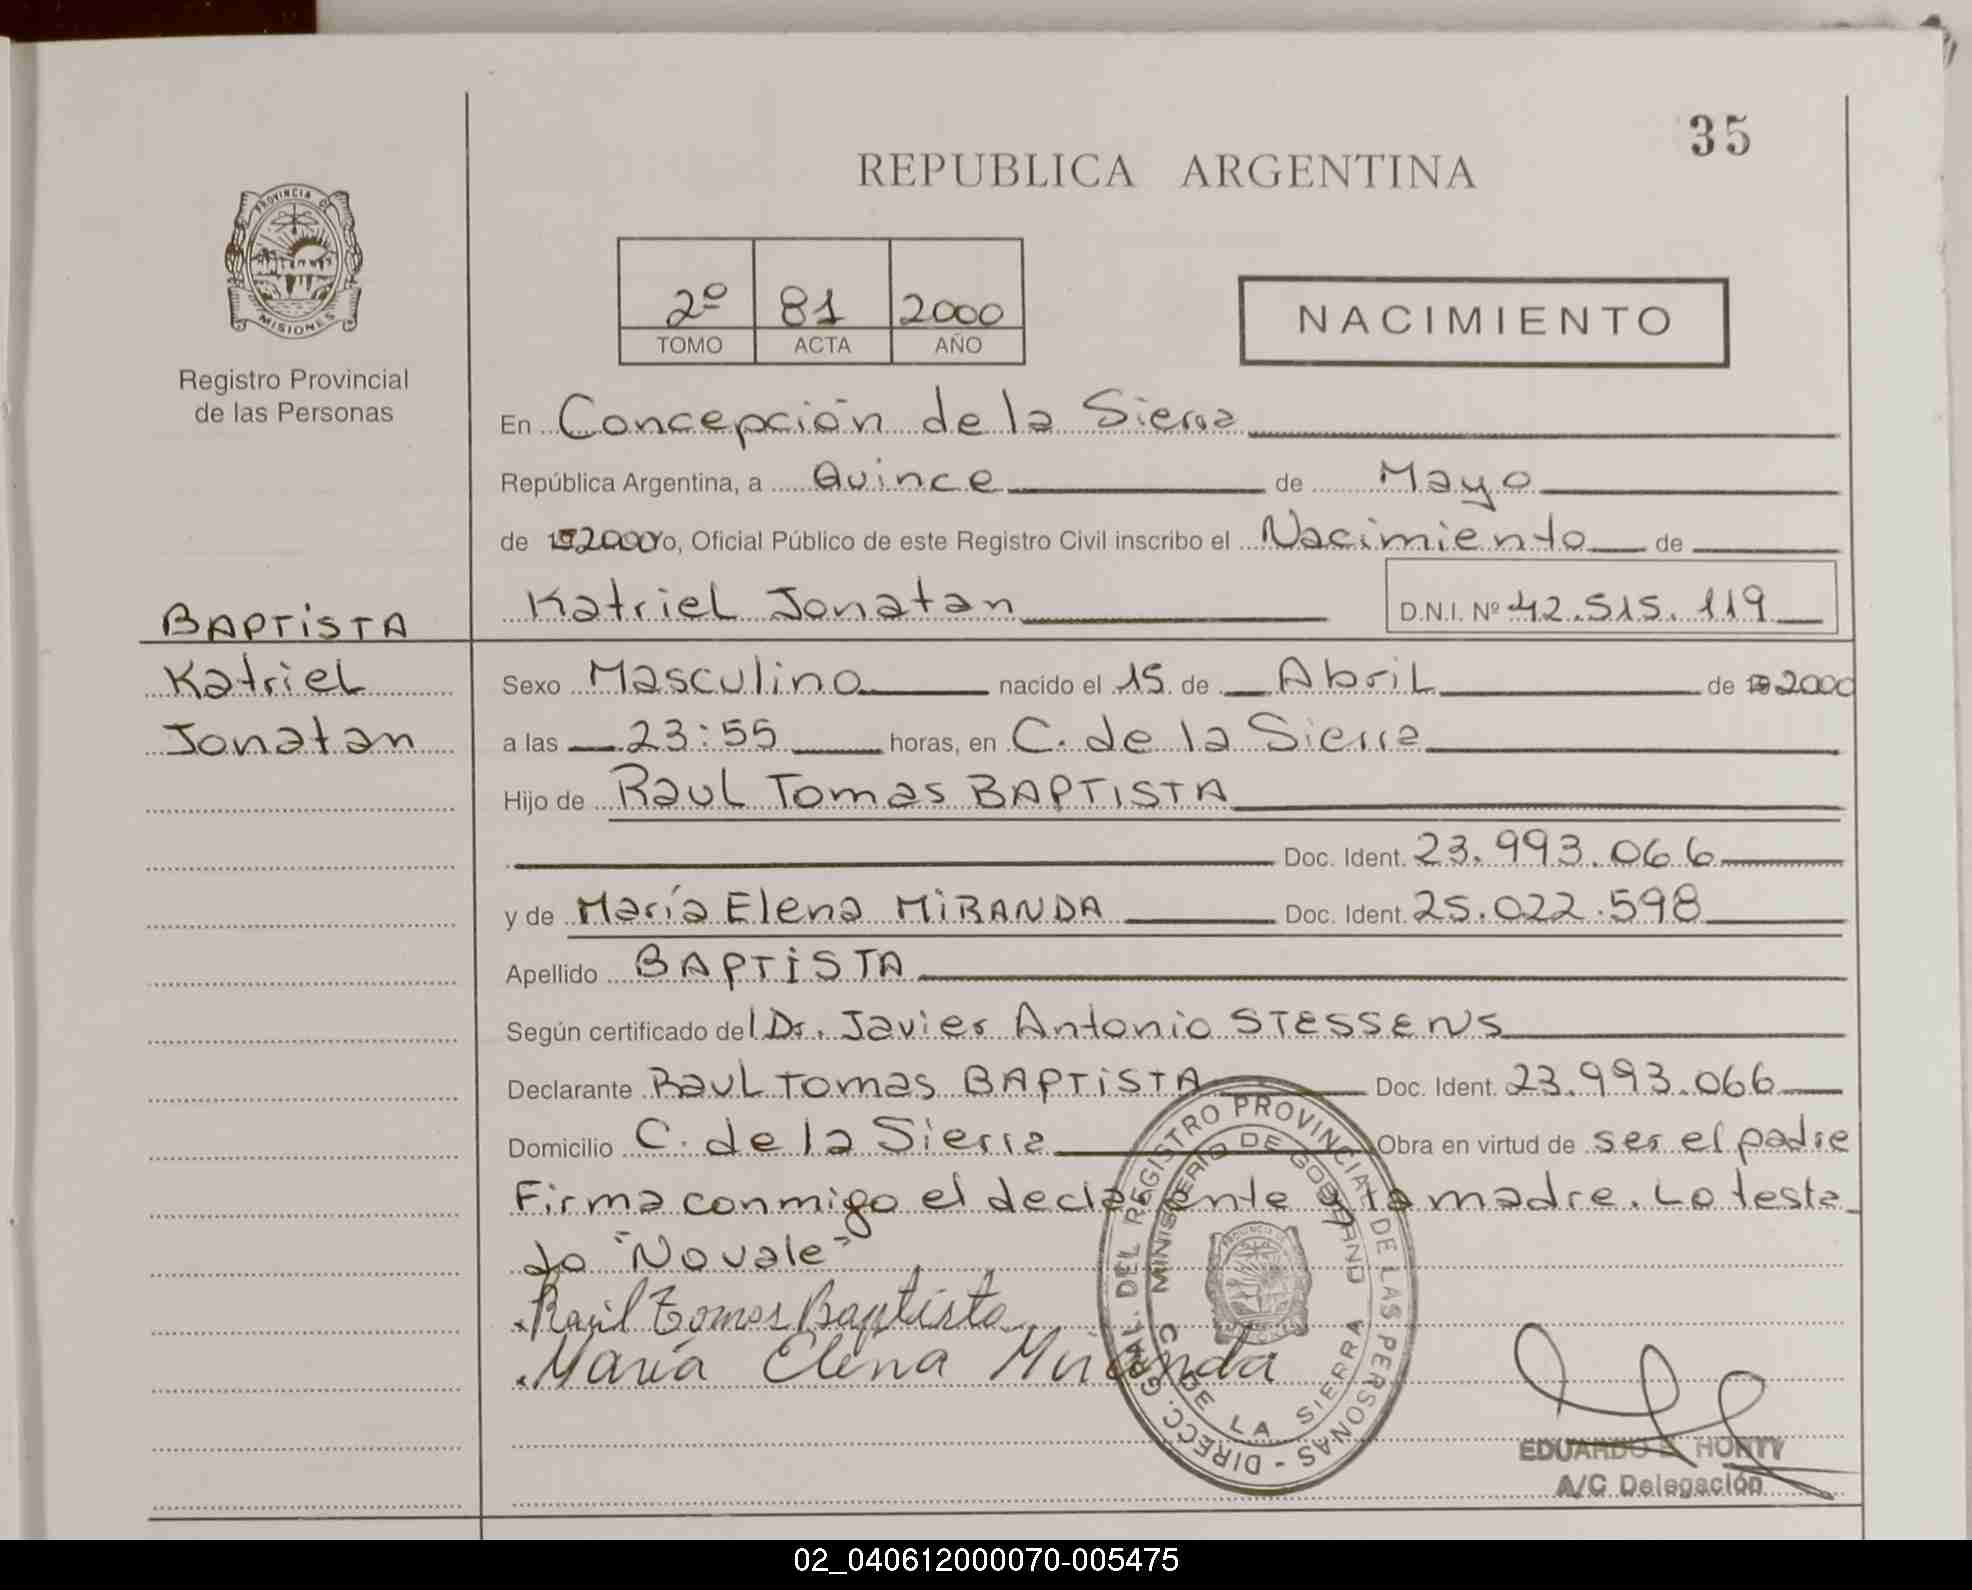 35
REPUBLICA ARGENTINA
PROVINCIA DE
MISIONES
Registro Provincial
de las Personas
2º 81 2000
TOMO ACTA AÑO
NACIMIENTO
En Concepción de la Sierra
República Argentina, a Quince de Mayo
de 2000 yo, Oficial Público de este Registro Civil inscribo el Nacimiento de
Katriel Jonatan D.N.I. Nº 42.515.119
BAPTISTA
Katriel
Jonatan
Sexo Masculino nacido el 15 de Abril de 2000
a las 23:55 horas, en C. de la Sierra
Hijo de Raul Tomas BAPTISTA
Doc. Ident. 23.993.066
y de María Elena MIRANDA Doc. Ident. 25.022.598
Apellido BAPTISTA
Según certificado del Dr. Javier Antonio STESSENS
Declarante Raul Tomas BAPTISTA Doc. Ident. 23.993.066
Domicilio C. de la Sierra Obra en virtud de ser el padre
Firma conmigo el declarante y la madre. Lo testa
do "No vale"
Raúl Tomas Baptista
María Elena Miranda
DIRECC. GRAL. DEL REGISTRO PROVINCIAL DE LAS PERSONAS -
MINISTERIO DE GOBIERNO
C. DE LA SIERRA
EDUARDO HORTY
A/C Delegación
02_040612000070-005475